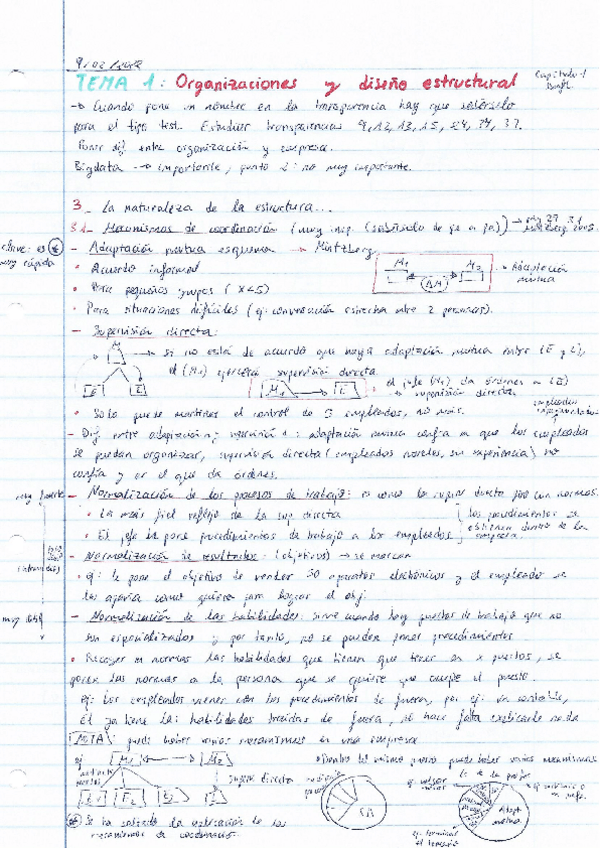 TEMA 1: Organizaciones y diseño estructural
-> Cuando pone un nombre en la transparencia hay que sabérselo
para el tipo test. Estudiar transparencias 9, 12, 13, 15, 24, 34, 37.
Poner dif entre organización y empresa.
Bigdata -> importante, punto 2: no muy importante.
3_ La naturaleza de la estructura...
3.1_ Mecanismos de coordinación (muy imp. (sabérselo de pe a pa))
clave: es
muy rápida
- Adaptación mutua esquema -> Mintzberg
• Acuerdo informal
-> Adaptación
mutua
• Para pequeños grupos (x<5)
• Para situaciones difíciles (ej: conversación estrecha entre 2 personas).
- Supervisión directa:
-> si no está de acuerdo que haya adaptación mutua entre (E y E),
él (M1) ejercerá supervisión directa.
• el jefe (M1) da órdenes a (E)
-> supervisión directa
• Solo puede mantener el control de 5 empleados, no más.
- Dif entre adaptación y supervisión: adaptación mutua confía en que los empleados
se puedan organizar, supervisión directa (empleados noveles, sin experiencia) no
confía y es el que da órdenes.
muy fuerte
- Normalización de los procesos de trabajo: es como la superv directa pero con normas.
• La más fiel reflejo de la sup. directa
• El jefe le pone procedimientos de trabajo a los empleados
los procedimientos se
obtienen dentro de la
empresa
- Normalización de resultados: (objetivos) -> se marcan
• ej: le pone el objetivo de vender 50 aparatos electrónicos y el empleado se
las apaña como quiera para lograr el obj.
muy débil
- Normalización de las habilidades: sirve cuando hay puestos de trabajo que no
son especializados y por tanto, no se pueden poner procedimientos
• Recoger en normas las habilidades que tienen que tener en x puestos, se
ponen las normas a la persona que se quiere que ocupe el puesto.
ej: Los empleados vienen con los procedimientos de fuera, por ej: un contable,
él ya tiene las habilidades traídas de fuera, no hace falta explicarle nada
NOTA: puede haber varios mecanismos en una empresa
• Dentro del mismo puesto puede haber varios mecanismos
superv directa
Adapt
mutua
Se ha saltado la utilización de los
mecanismos de coordinación.